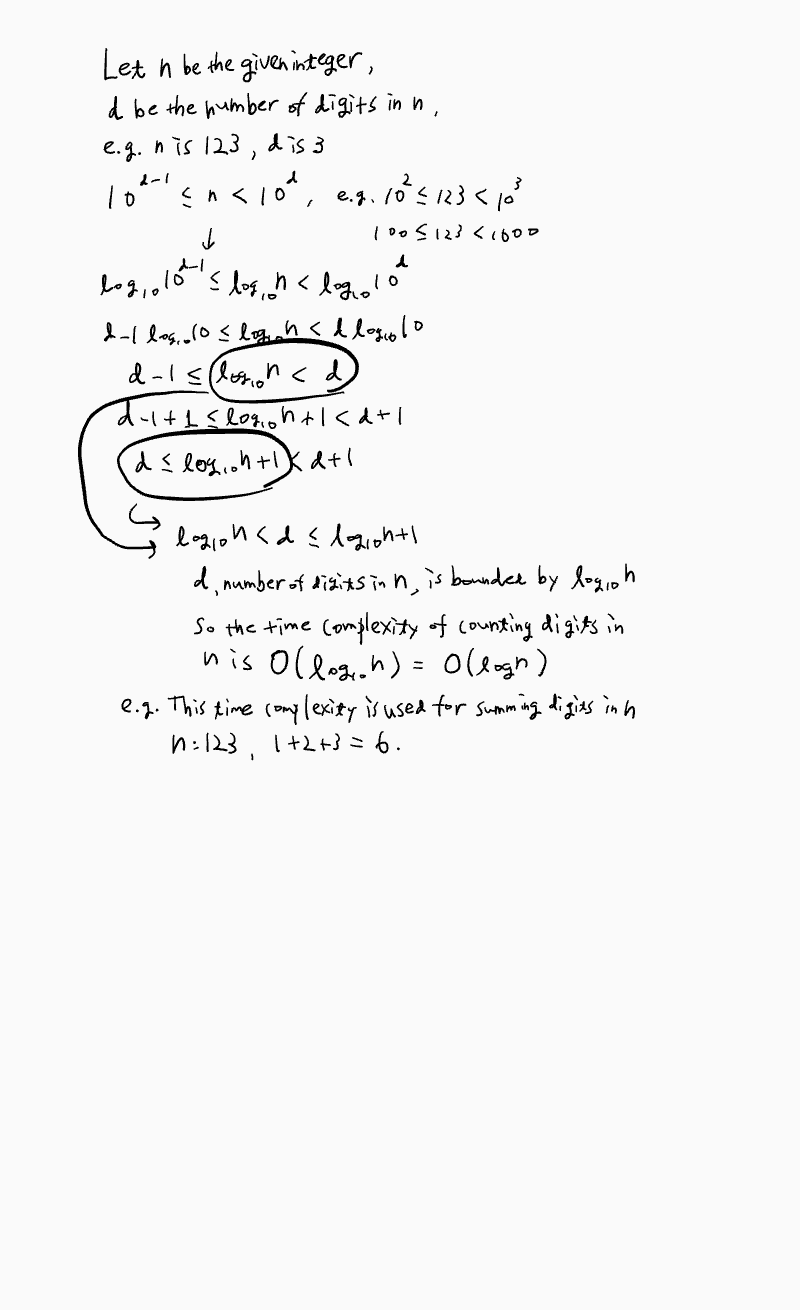 Let n be the given integer,
d be the number of digits in n,
e.g. n is 123, d is 3
10^{d-1} ≤ n < 10^d, e.g. 10^2 ≤ 123 < 10^3
100 ≤ 123 < 1000
↓
log₁₀10^{d-1} ≤ log₁₀n < log₁₀10^d
d-1 log₁₀10 ≤ log₁₀n < d log₁₀10
d-1 ≤ log₁₀n < d
d-1+1 ≤ log₁₀n+1 < d+1
d ≤ log₁₀n+1 < d+1
log₁₀n < d ≤ log₁₀n+1
d, number of digits in n, is bounded by log₁₀n
So the time complexity of counting digits in
n is O(log₁₀n) = O(logn)
e.g. This time complexity is used for summing digits in n
n=123, 1+2+3=6.